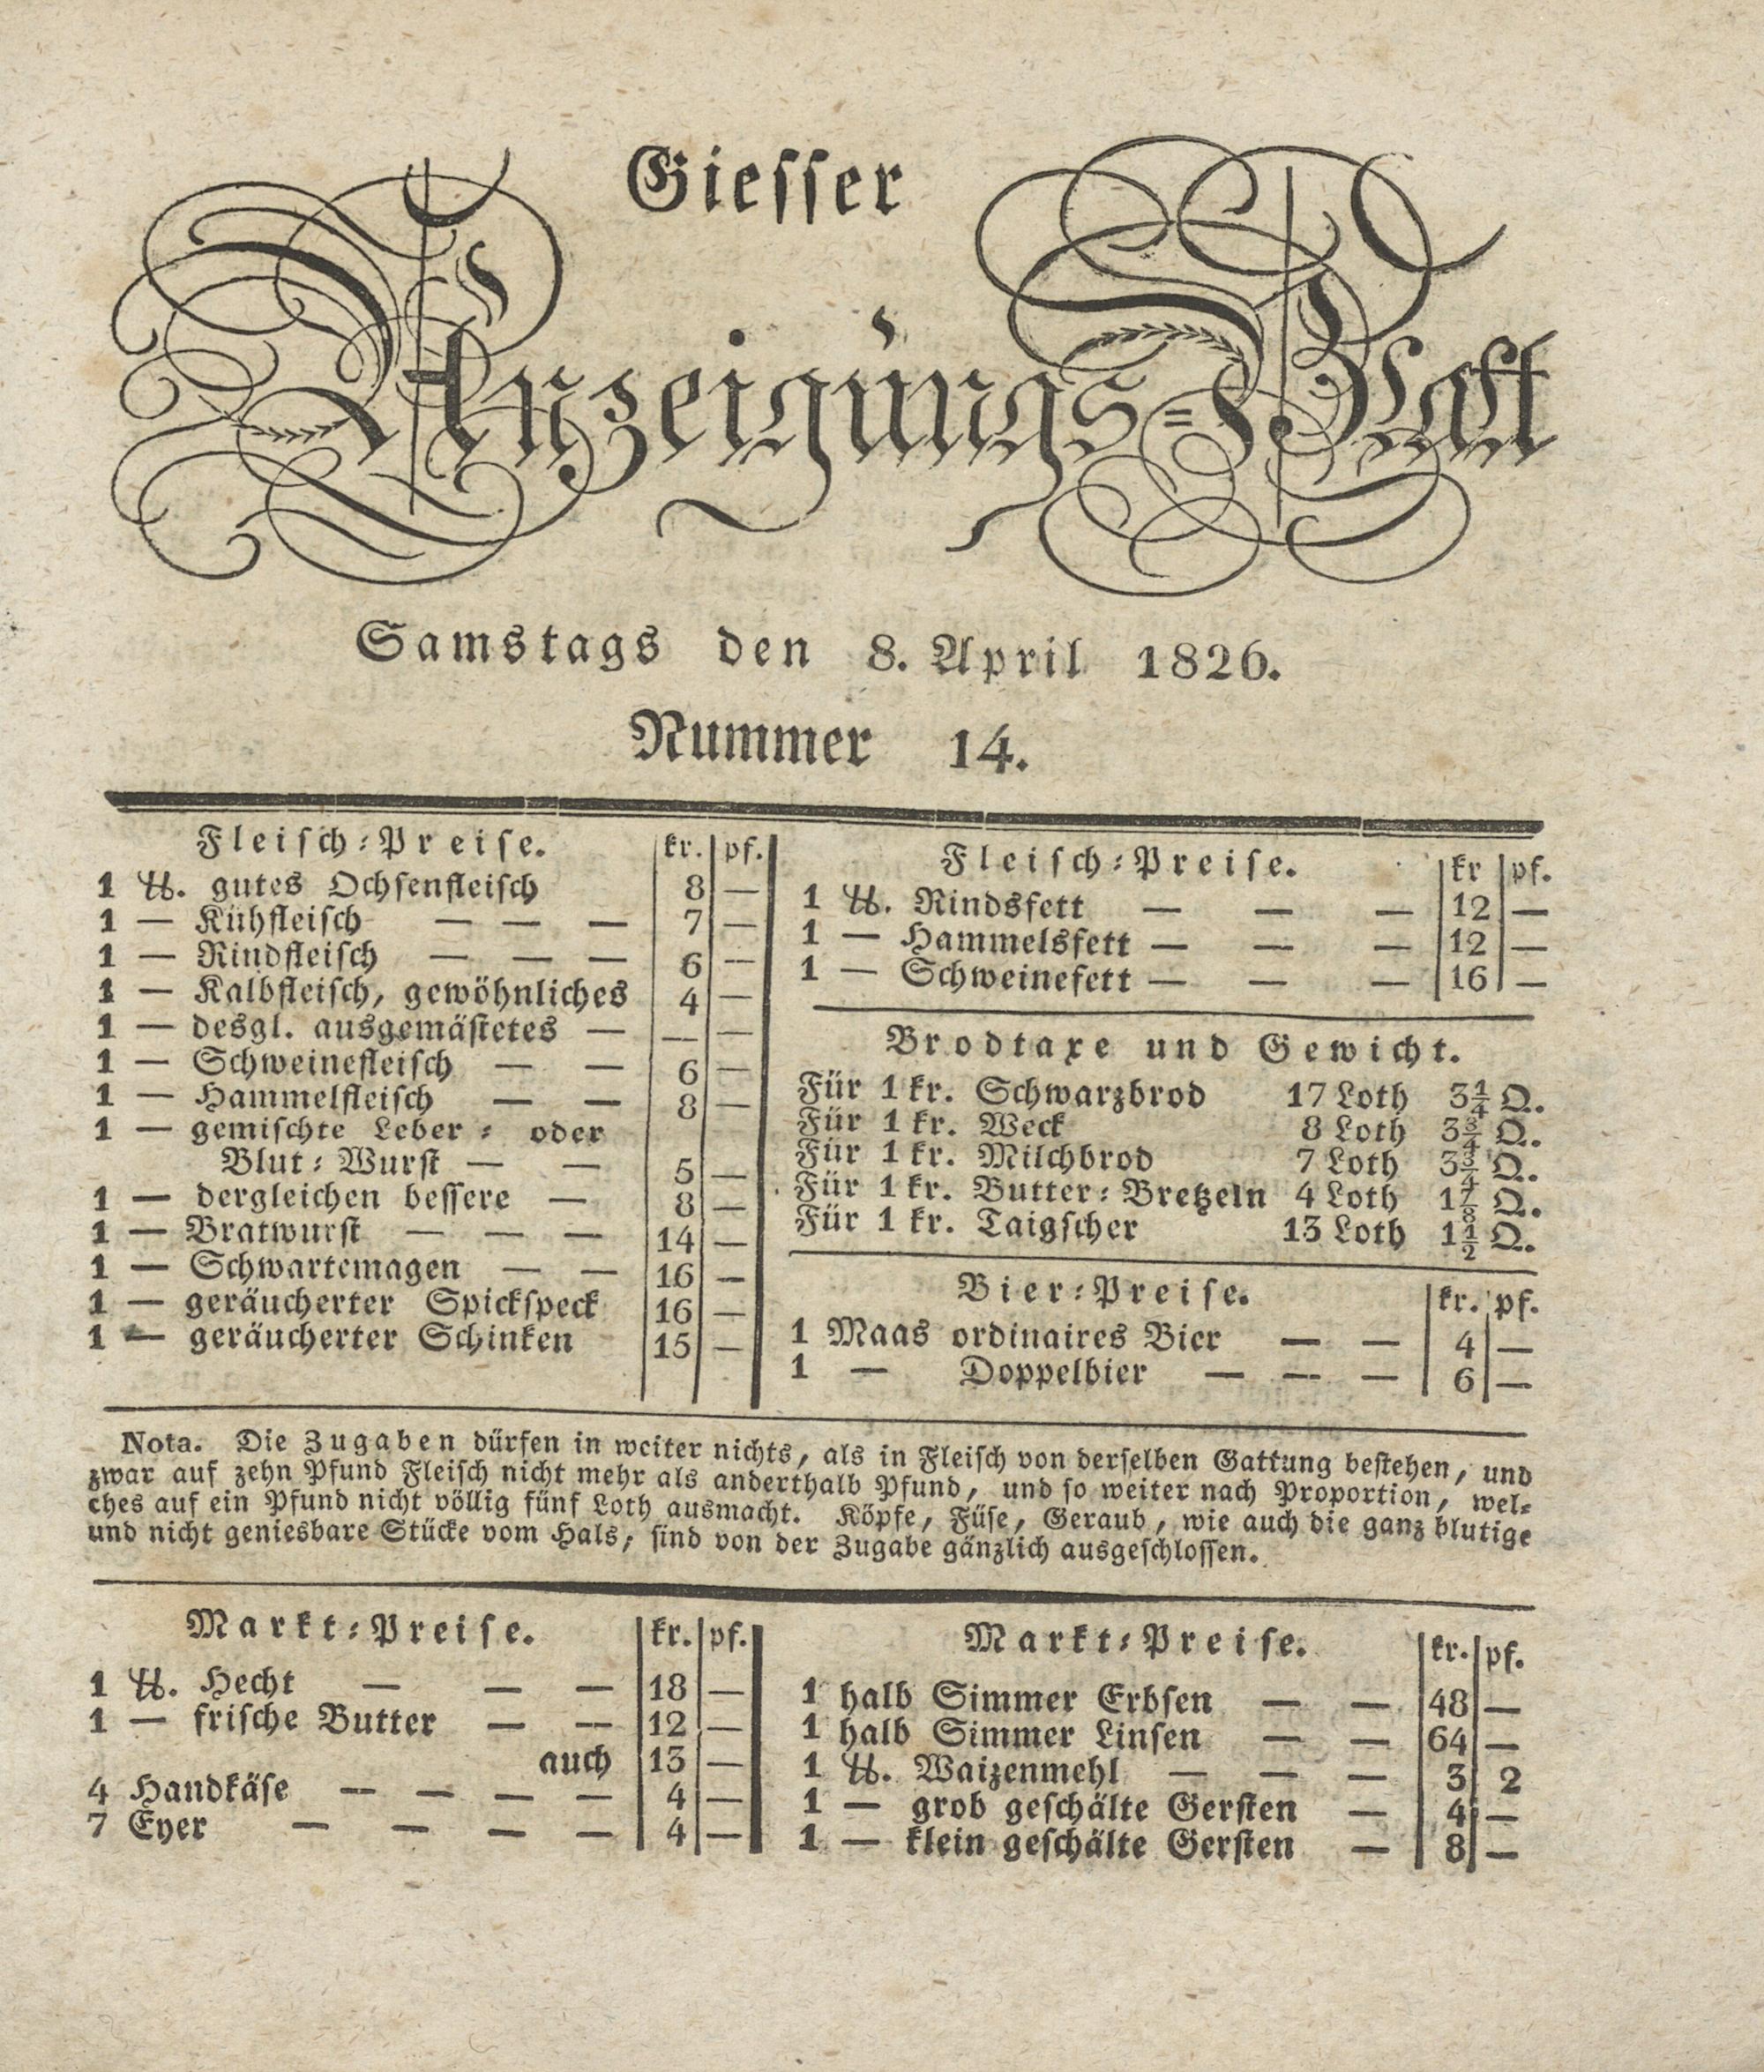 Giesser
Anzeigungs=Blatt
Samstags den 8. April 1826.
Nummer 14.
Fleisch=Preise. kr. pf.
1 ℔. gutes Ochsenfleisch 8 —
1 — Kühfleisch — — — 7 —
1 — Rindfleisch — — — 6 —
1 — Kalbfleisch, gewöhnliches 4 —
1 — desgl. ausgemästetes — — —
1 — Schweinefleisch — — 6 —
1 — Hammelfleisch — — 8 —
1 — gemischte Leber= oder
Blut=Wurst — — 5 —
1 — dergleichen bessere — 8 —
1 — Bratwurst — — — 14 —
1 — Schwartemagen — — 16 —
1 — geräucherter Spickspeck 16 —
1 — geräucherter Schinken 15 —
Fleisch=Preise. kr pf.
1 ℔. Rindsfett — — — 12 —
1 — Hammelsfett — — — 12 —
1 — Schweinefett — — — 16 —
Brodtaxe und Gewicht.
Für 1 kr. Schwarzbrod 17 Loth 3¼ Q.
Für 1 kr. Weck 8 Loth 3¾ Q.
Für 1 kr. Milchbrod 7 Loth 3¾ Q.
Für 1 kr. Butter=Bretzeln 4 Loth 1⅞ Q.
Für 1 kr. Taigscher 13 Loth 1½ Q.
Bier=Preise. kr. pf.
1 Maas ordinaires Bier — — 4 —
1 — Doppelbier — — — 6 —
Nota. Die Zugaben dürfen in weiter nichts, als in Fleisch von derselben Gattung bestehen, und
zwar auf zehn Pfund Fleisch nicht mehr als anderthalb Pfund, und so weiter nach Proportion, wel=
ches auf ein Pfund nicht völlig fünf Loth ausmacht. Köpfe, Füse, Geraub, wie auch die ganz blutige
und nicht geniesbare Stücke vom Hals, sind von der Zugabe gänzlich ausgeschlossen.
Markt=Preise. kr. pf.
1 ℔. Hecht — — — 18 —
1 — frische Butter — — 12 —
auch 13 —
4 Handkäse — — — — 4 —
7 Eyer — — — — 4 —
Markt=Preise. kr. pf.
1 halb Simmer Erbsen — — 48 —
1 halb Simmer Linsen — — 64 —
1 ℔. Waizenmehl — — — 3 2
1 — grob geschälte Gersten — 4 —
1 — klein geschälte Gersten — 8 —